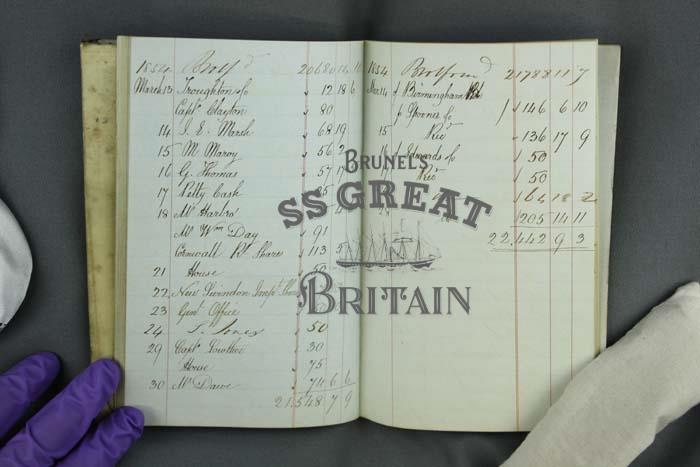 1854 Bro.t f.d 2068 14 10
March 13 Troughton & Co 12 18 6
Capt. Clayton 80
14 J. E. Marsh 68 19
15 M. Maroy 56 2
16 G. Thomas 57 17
17 Petty Cash
18 Mr Harbro
Mr Wm Day 91
Cornwall Ry Shares 113 5
21 House 50
22 New Swindon Impt.
23 Genl Office
24 S. Jones 50
29 Capt. Lowther 30
House 75
30 Mr Dawe 74 6 6
21,548 7 9
1854 Bro.t forwd 21788 11 7
Mar 14 Birmingham
Spooner & Co 146 6 10
15 136 17 9
16 Edwards & Co 50
17 50
64 18 2
205 14 11
22,442 9 3
BRUNEL'S
SS GREAT
BRITAIN